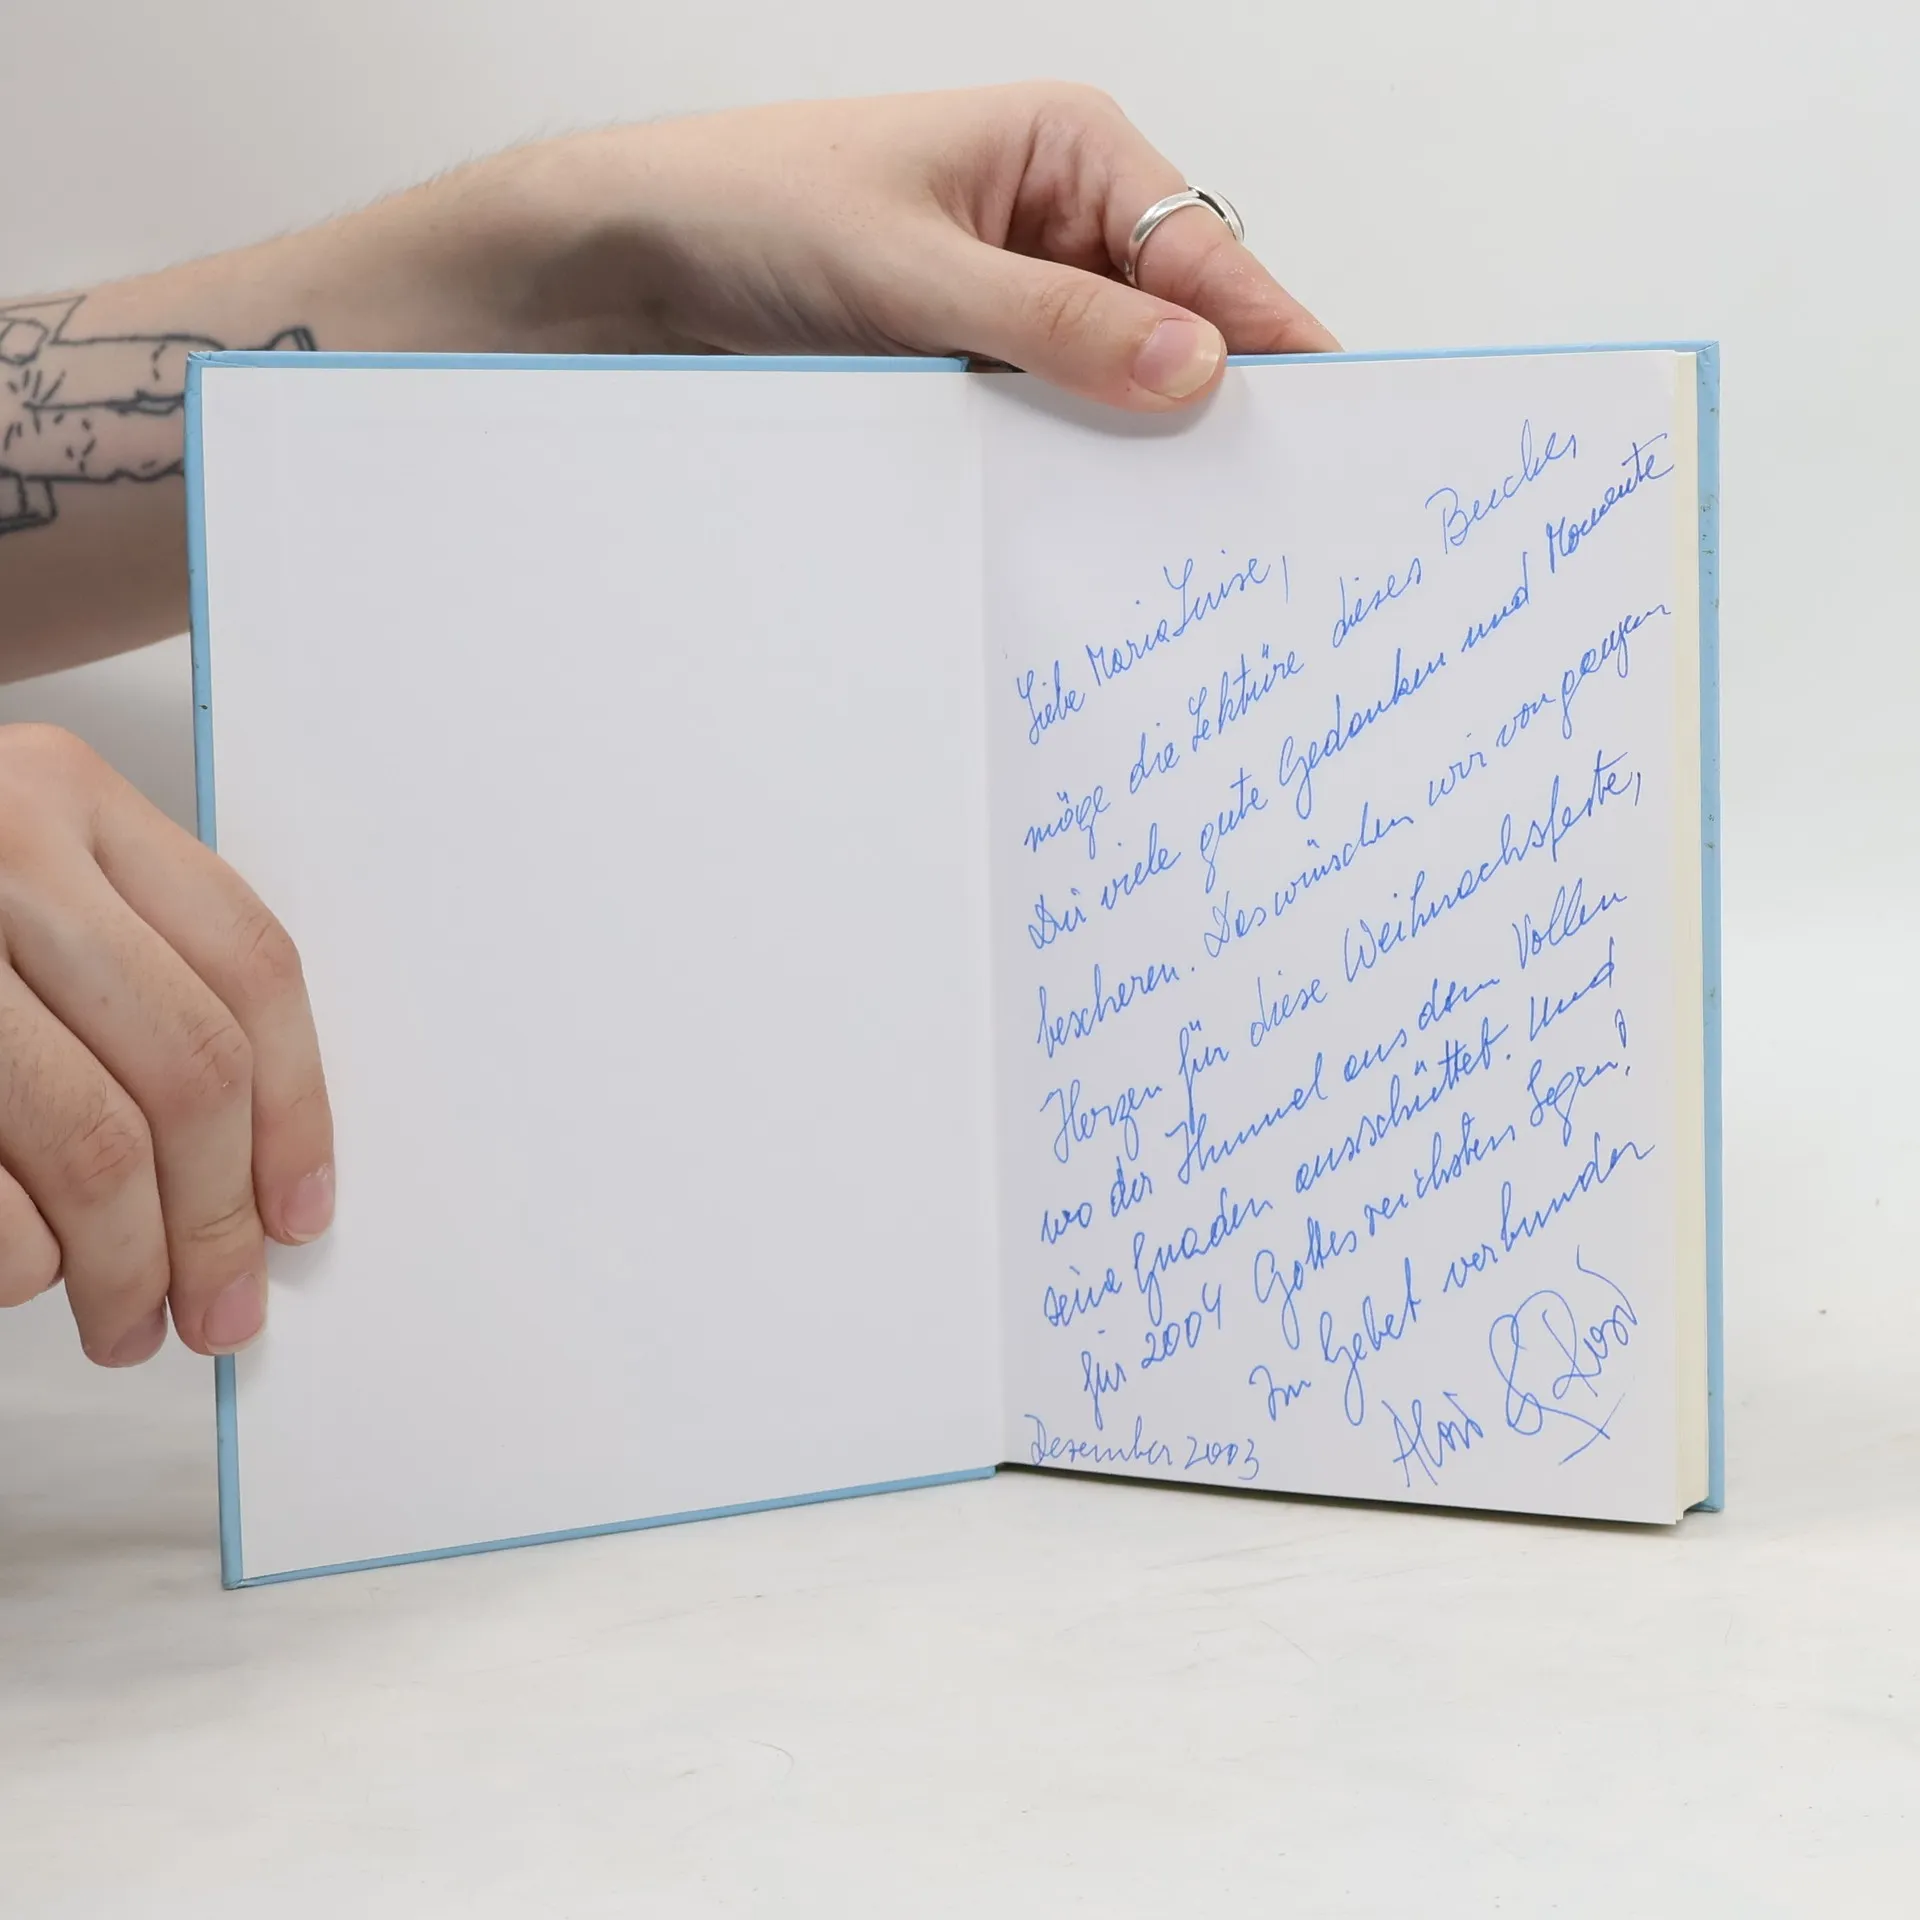 Liebe Maria Luise,
möge die Lektüre dieses Buches
Dir viele gute Gedanken und Momente
bescheren. Das wünschen wir von ganzem
Herzen für diese Weihnachsfeste,
wo der Himmel aus dem Vollen
seine Gnaden ausschüttet. Und
für 2004 Gottes reichsten Segen!
Im Gebet verbunden
Alois &
Dezember 2003